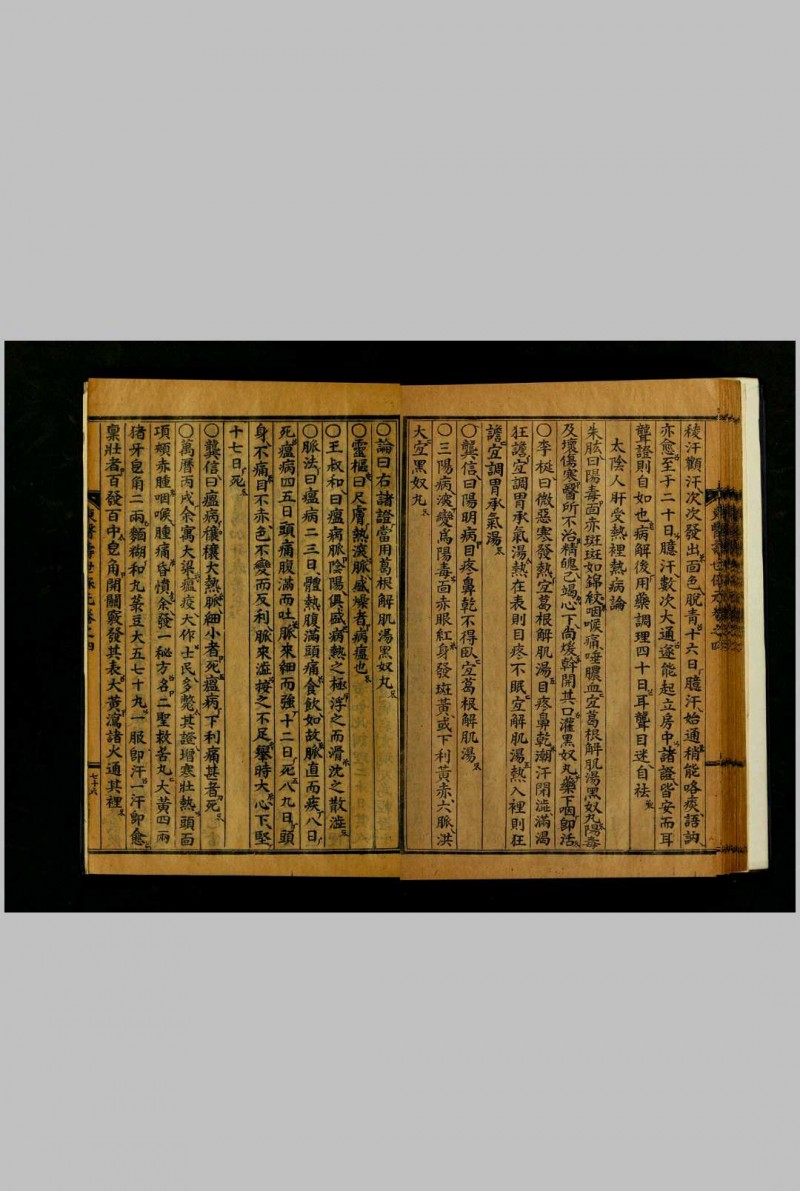 稜汗顴汗次次發出面色脫青十六日臆汗始通稍能咯痰語訥
亦愈至于二十日臆汗數次大通遂能起立房中諸證皆安而耳
聾證則自如也病解後用藥調理四十日耳聾目迷自祛
太陰人肝受熱裡熱病論
朱肱曰陽毒面赤斑斑如錦紋咽喉痛唾膿血宜葛根解肌湯黑奴丸陽毒
及壞傷寒醫所不治精魄已竭心下尚煖斡開其口灌黑奴丸藥下咽卽活
〇李梴曰微惡寒發熱宜葛根解肌湯目疼鼻乾潮汗閉澁滿渴
狂譫宜調胃承氣湯熱在表則目疼不眠宜解肌湯熱入裡則狂
譫宜調胃承氣湯
〇龔信曰陽明病目疼鼻乾不得臥宜葛根解肌湯
〇三陽病深變爲陽毒面赤眼紅身發斑黃或下利黃赤六脈洪
大宜黑奴丸
〇論曰右諸證當用葛根解肌湯黑奴丸
〇靈樞曰尺膚熱深脈盛燥者病瘟也
〇王叔和曰瘟病脈陰陽俱盛病熱之極浮之而滑沈之散澁
〇脈法曰瘟病二三日體熱腹滿頭痛食飮如故脈直而疾八日
死瘟病四五日頭痛腹滿而吐脈來細而强十二日死八九日頭
身不痛目不赤色不變而反利脈來澁按之不足擧時大心下堅
十七日死
〇龔信曰瘟病穰穰大熱脈細小者死瘟病下利痛甚者死
〇萬曆丙戌余寓大梁瘟疫大作士民多斃其證增寒壯熱頭面
項頰赤腫咽喉腫痛昏憒余發一秘方名二聖救苦丸大黃四兩
猪牙皂角二兩麵糊和丸菉豆大五七十丸一服卽汗一汗卽愈
稟壯者百發百中皂角開關竅發其表大黃瀉諸火通其裡
東醫壽世保元卷之四
七十八